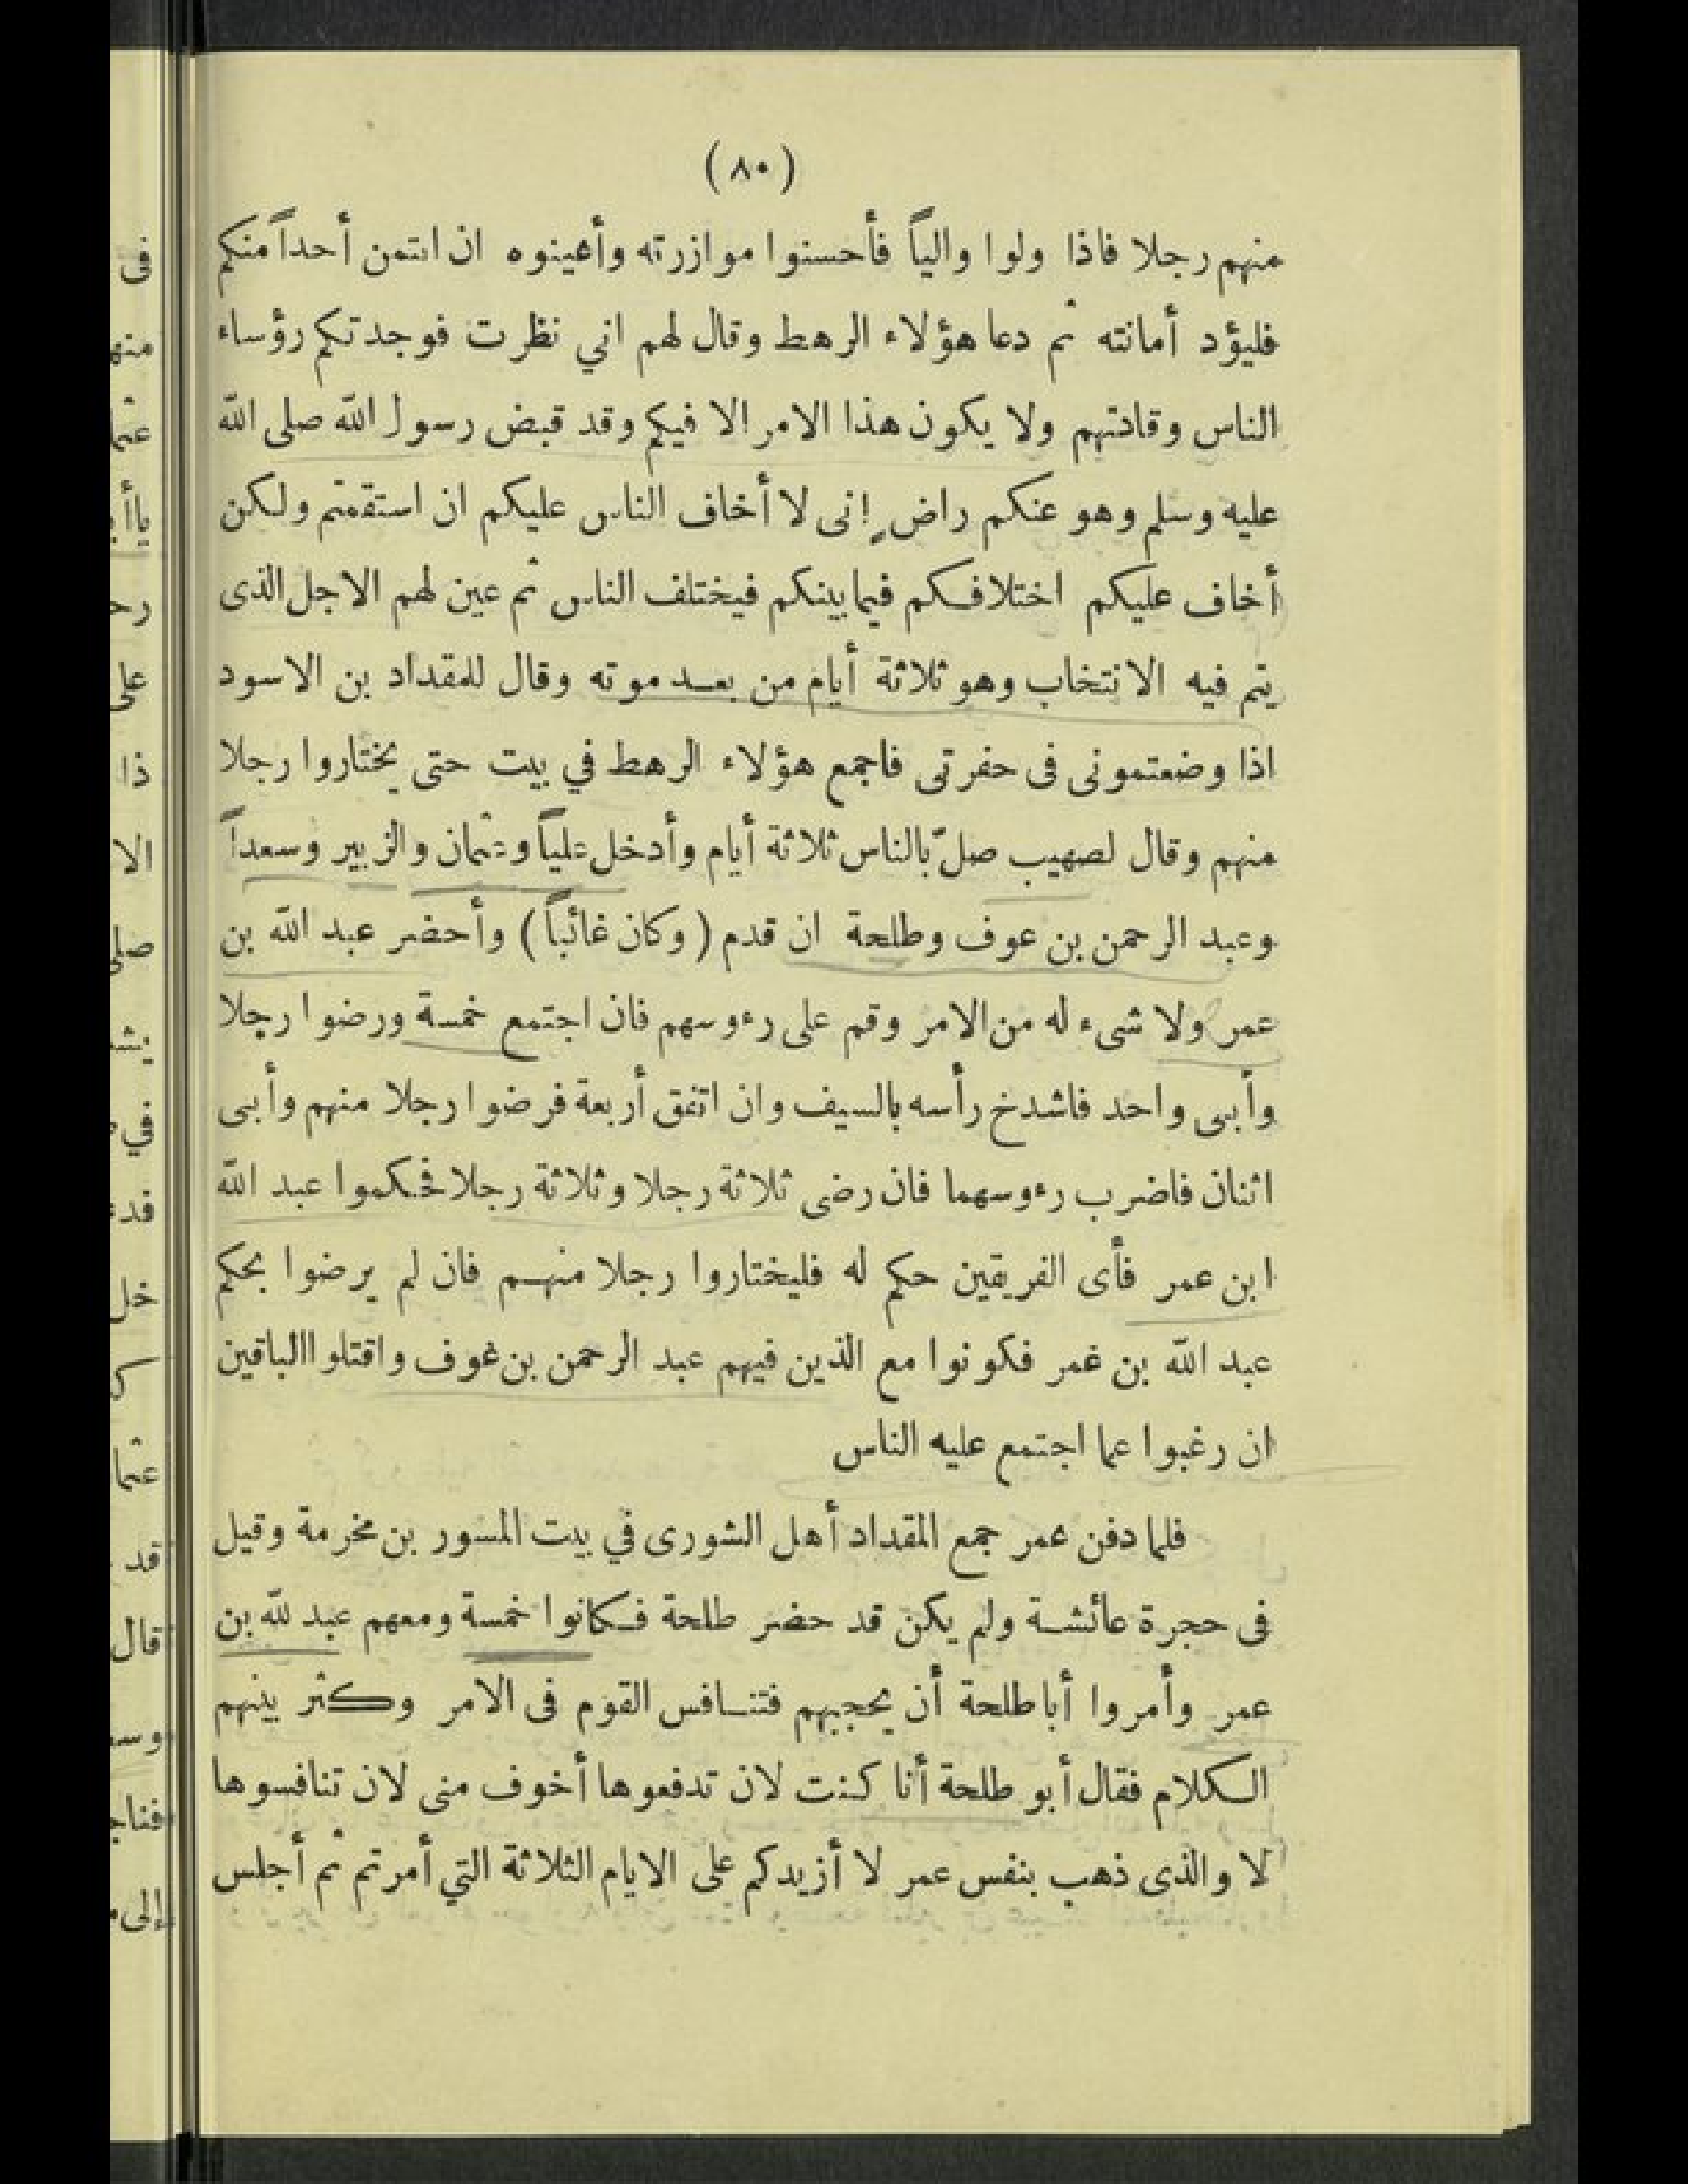 (٨٠)
منهم رجلا فاذا ولوا والياً فأحسنوا موازرته وأعينوه ان ائتمن أحداً منكم
فليؤد أمانته ثم دعا هؤلاء الرهط وقال لهم اني نظرت فوجدتكم رؤساء
الناس وقادتهم ولا يكون هذا الامر الا فيكم وقد قبض رسول الله صلى الله
عليه وسلم وهو عنكم راضٍ إنى لا أخاف الناس عليكم ان استقمتم ولكن
أخاف عليكم اختلافكم فيما بينكم فيختلف الناس ثم عين لهم الاجل الذى
يتم فيه الانتخاب وهو ثلاثة أيام من بعد موته وقال للمقداد بن الاسود
اذا وضعتمونى فى حفرتى فاجمع هؤلاء الرهط في بيت حتى يختاروا رجلا
منهم وقال لصهيب صلّ بالناس ثلاثة أيام وأدخل علياً وعثمان والزبير وسعداً
وعبد الرحمن بن عوف وطلحة ان قدم (وكان غائباً) وأحضر عبد الله بن
عمر ولا شىء له من الامر وقم على رءوسهم فان اجتمع خمسة ورضوا رجلا
وأبى واحد فاشدخ رأسه بالسيف وان اتفق أربعة فرضوا رجلا منهم وأبى
اثنان فاضرب رءوسهما فان رضى ثلاثة رجلا وثلاثة رجلا فحكموا عبد الله
ابن عمر فأى الفريقين حكم له فليختاروا رجلا منهم فان لم يرضوا بحكم
عبد الله بن عمر فكونوا مع الذين فيهم عبد الرحمن بن عوف واقتلوا الباقين
ان رغبوا عما اجتمع عليه الناس
فلما دفن عمر جمع المقداد أهل الشورى في بيت المسور بن مخرمة وقيل
فى حجرة عائشة ولم يكن قد حضر طلحة فكانوا خمسة ومعهم عبد لله بن
عمر وأمروا أبا طلحة أن يحجبهم فتنافس القوم فى الامر وكثر بينهم
الكلام فقال أبو طلحة أنا كنت لان تدفعوها أخوف منى لان تنافسوها
لا والذى ذهب بنفس عمر لا أزيدكم على الايام الثلاثة التي أمرتم ثم أجلس